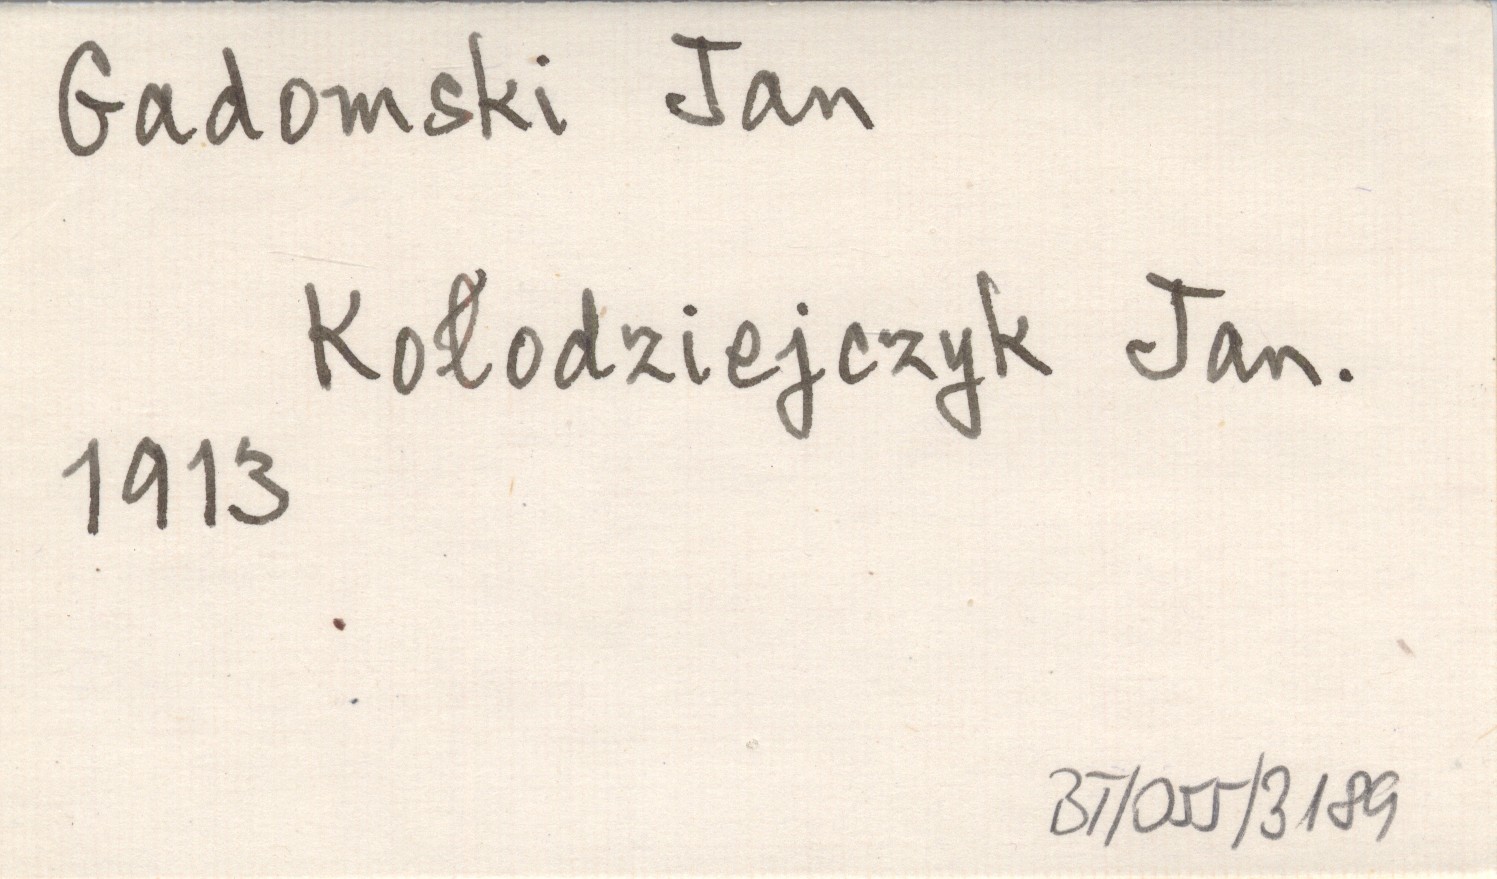 Gadomski Jan
Kołodziejczyk Jan.
1913
BT/055/3189